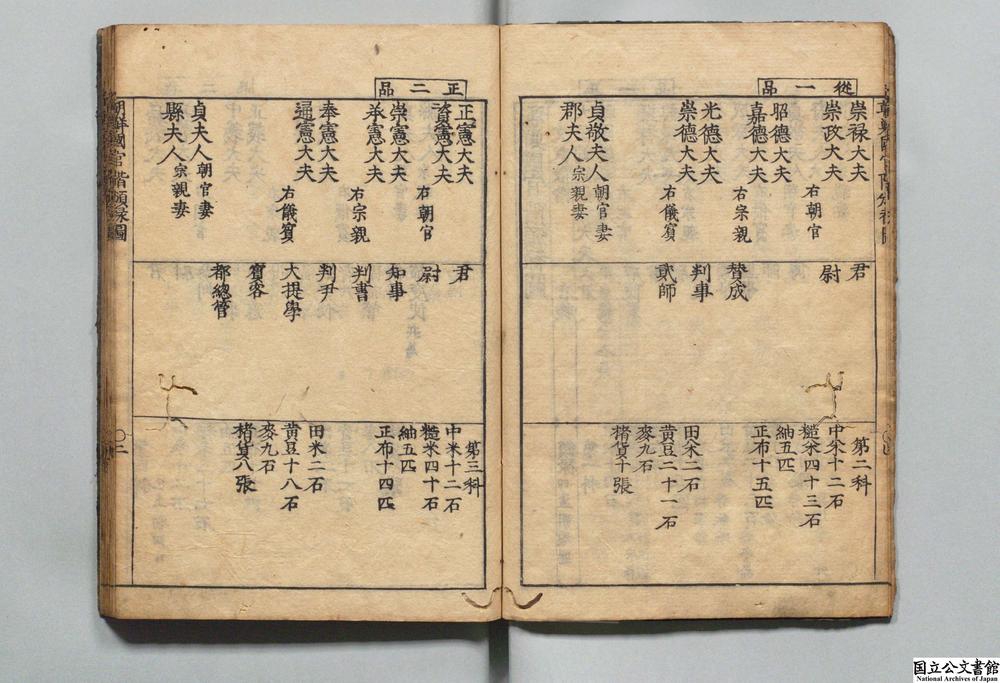 從一品
崇祿大夫
崇政大夫
右朝官
昭德大夫
嘉德大夫
右宗親
光德大夫
崇德大夫
右儀賓
貞敬夫人朝官妻
郡夫人宗親妻
君
尉
賛成
判事
貳師
第二科
中米十二石
糙米四十三石
紬五匹
正布十五匹
田米二石
黄豆二十一石
麥九石
楮貨十張
正二品
正憲大夫
資憲大夫
右朝官
崇憲大夫
承憲大夫
右宗親
奉憲大夫
通憲大夫
右儀賓
貞夫人朝官妻
縣夫人宗親妻
君
尉
知事
判書
判尹
大提學
賓客
都總管
第三科
中米十二石
糙米四十石
紬五匹
正布十四匹
田米二石
黄豆十八石
麥九石
楮貨八張
朝鮮國官階頒祿圖
二
国立公文書館
National Archives of Japan